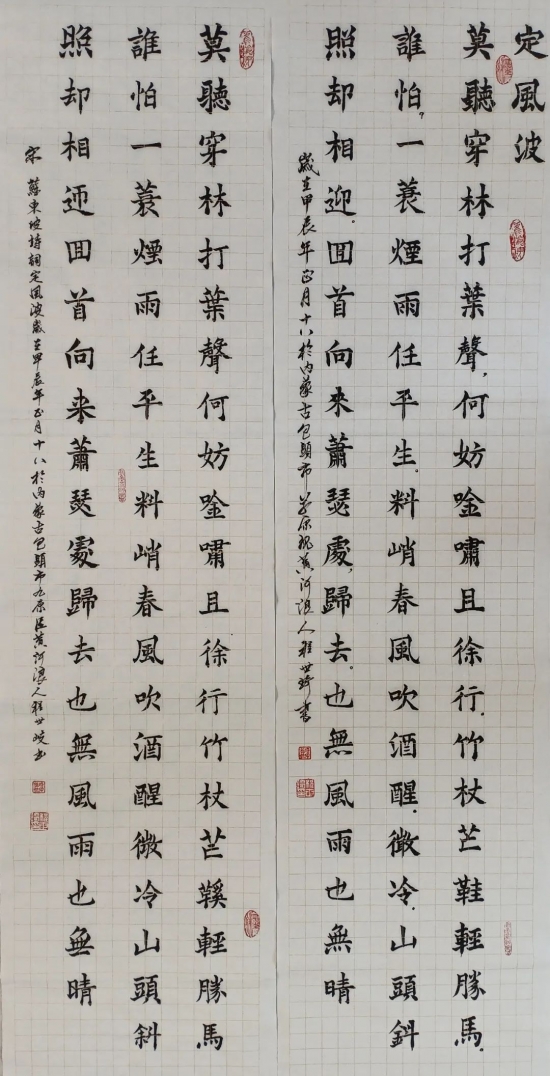 定風波
莫聽穿林打葉聲,何妨唫嘯且徐行.竹杖芒鞋輕勝馬.
誰怕?一蓑煙雨任平生。料峭春風吹酒醒.微冷.山頭斜
照却相迎.回首向來蕭瑟處,歸去。也無風雨也無晴
歲在甲辰年正月十八於內蒙古包頭市 黃河浪人程世 書
莫聽穿林打葉聲何妨唫嘯且徐行竹杖芒鞵輕勝馬
誰怕一蓑煙雨任平生料峭春風吹酒醒微冷山頭斜
照却相迎回首向來蕭瑟處歸去也無風雨也無晴
宋 蘇東坡詩詞定風波歲在甲辰年正月十八於內蒙古包頭市九原區黃河浪人程世 書